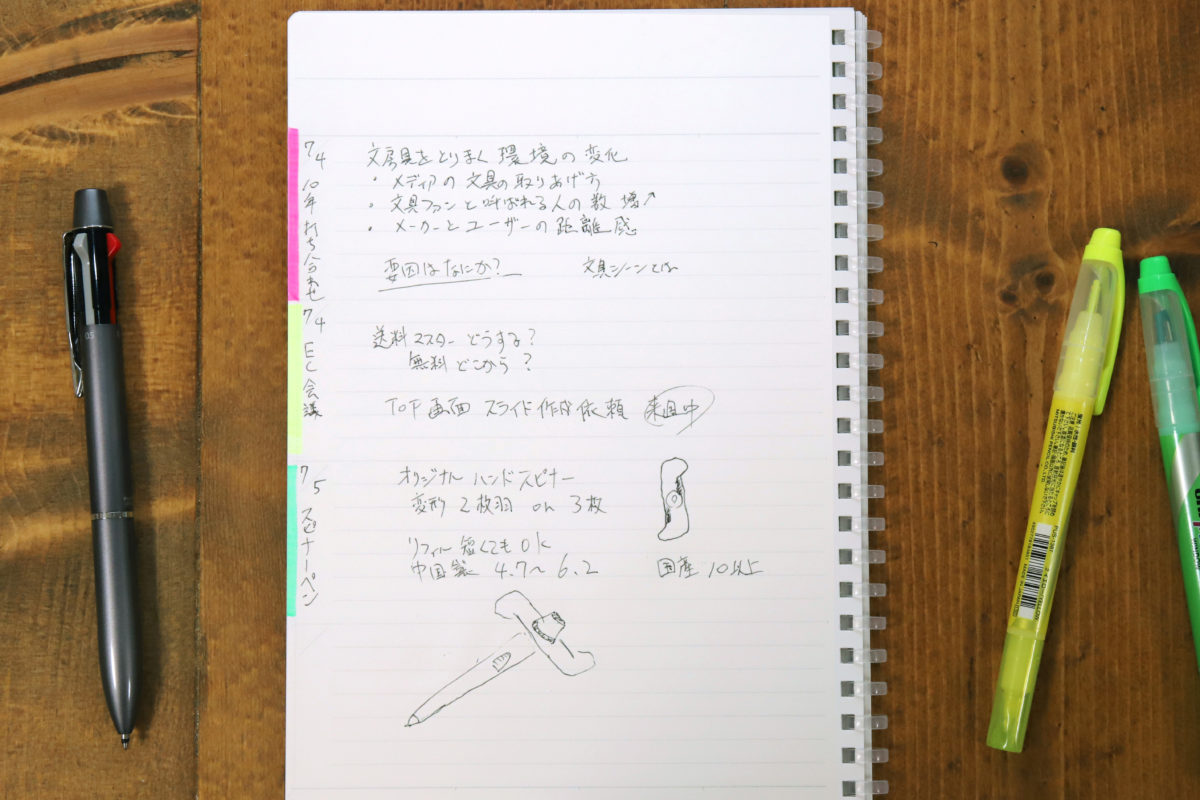 7/4 10年打ち合わせ
文房具をとりまく環境の変化
・メディアの文具の取りあげ方
・文具ファンと呼ばれる人の数 増↗
・メーカーとユーザーの距離感
要因はなにか？
文具シーンとは
7/4 EC会議
送料マスター どうする？
無料どこから？
TOP画面 スライド作成依頼 来週中
7/5 スピナーペン
オリジナル ハンドスピナー
変形 2枚羽 or 3枚
リフィル 短くても OK
中国製 4.7〜6.2
国産 10以上
0.5
MITSUBISHI PENCIL CO., LTD.